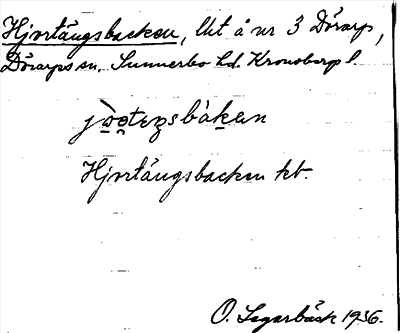 Hjortängsbacken, Ut å nr 3 Dörarp,
Dörarps sn. Sunnerbo hd. Kronobergs l.
Hjortängsbacken tb.
O. Lagerbäck 1936.